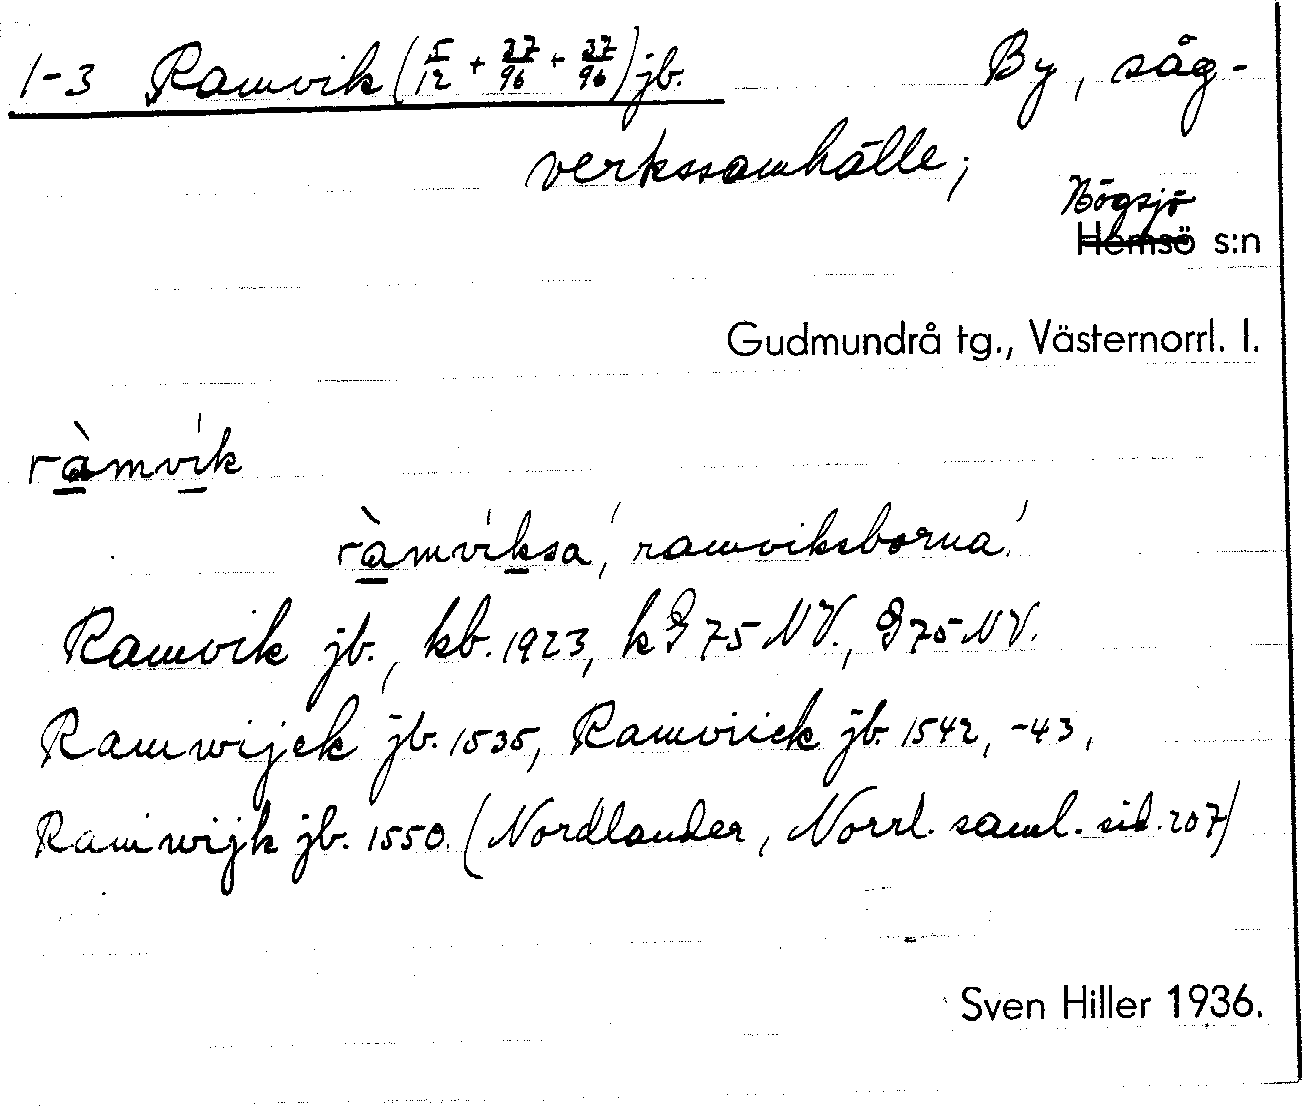 1-3 Ramvik (5/12 + 37/96 + 37/96) jb. By, såg-
verkssamhälle;
Högsjö
Hemsö s:n
Gudmundrå tg., Västernorrl. l.
ràmvík
ràmvíksa, 'ramviksborna'
Ramvik jb., kb. 1923, kG 75 NV., G 75 NV.
Ramwijck jb. 1535, Ramviick jb. 1542, -43,
Ramwijk jb. 1550. (Nordlander, Norrl. saml. sid. 207)
Sven Hiller 1936.